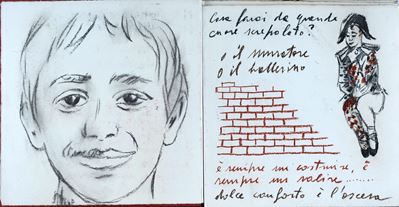 Cosa farai da grande
cuore screpolato?
o il muratore
o il ballerino
è sempre un costruire, è
sempre un salire.........
dolce conforto è l'ascesa